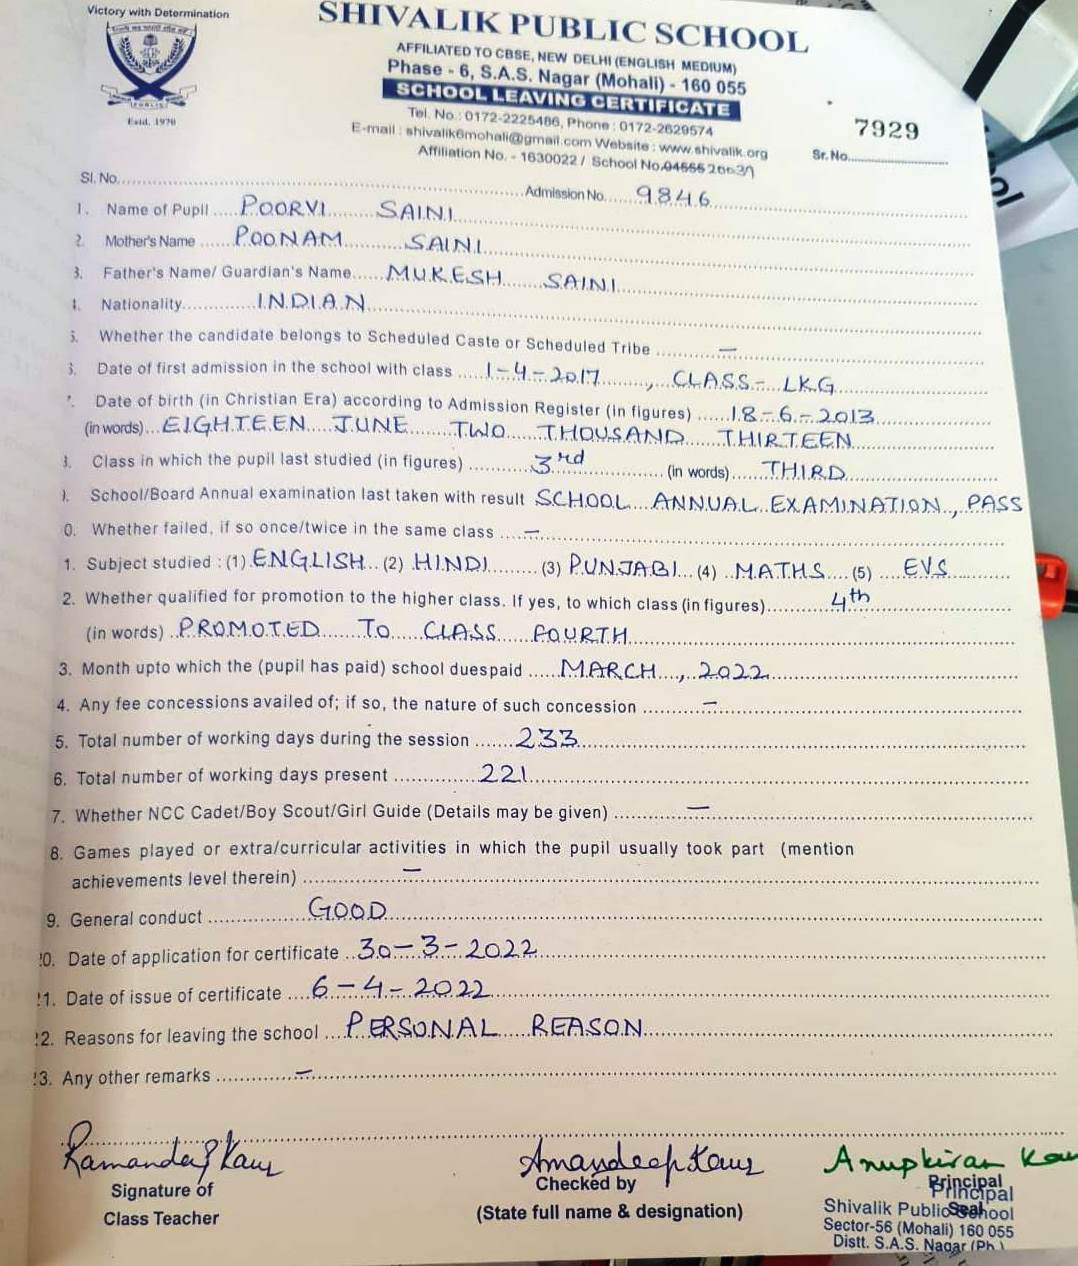 Victory with Determination
SHIVALIK PUBLIC SCHOOL
AFFILIATED TO CBSE, NEW DELHI (ENGLISH MEDIUM)
Phase - 6, S.A.S. Nagar (Mohali) - 160 055
SCHOOL LEAVING CERTIFICATE
Tel. No. : 0172-2225486, Phone : 0172-2629574
E-mail : shivalik6mohali@gmail.com Website : www.shivalik.org
Affiliation No. - 1630022 / School No.
Estd. 1970
7929
Sr. No.
Sl. No. Admission No. 9846
1. Name of Pupil POORVI SAINI
2. Mother's Name POONAM SAINI
3. Father's Name/ Guardian's Name MUKESH SAINI
Nationality INDIAN
Whether the candidate belongs to Scheduled Caste or Scheduled Tribe —
Date of first admission in the school with class 1-4-2017, CLASS- LKG
Date of birth (in Christian Era) according to Admission Register (in figures) 18-6-2013
(in words) EIGHTEEN JUNE TWO THOUSAND THIRTEEN
Class in which the pupil last studied (in figures) 3rd (in words) THIRD
School/Board Annual examination last taken with result SCHOOL ANNUAL EXAMINATION, PASS
0. Whether failed, if so once/twice in the same class —
1. Subject studied : (1) ENGLISH (2) HINDI (3) PUNJABI (4) MATHS (5) EVS
2. Whether qualified for promotion to the higher class. If yes, to which class (in figures) 4th
(in words) PROMOTED TO CLASS FOURTH
3. Month upto which the (pupil has paid) school duespaid MARCH, 2022
4. Any fee concessions availed of; if so, the nature of such concession —
5. Total number of working days during the session 233
6. Total number of working days present 221
7. Whether NCC Cadet/Boy Scout/Girl Guide (Details may be given) —
8. Games played or extra/curricular activities in which the pupil usually took part (mention
achievements level therein) —
9. General conduct GOOD
0. Date of application for certificate 30-3-2022
1. Date of issue of certificate 6-4-2022
2. Reasons for leaving the school PERSONAL REASON
3. Any other remarks —
Ramandeep Kaur Amandeep Kaur Anupkiran Kau
Signature of
Class Teacher
Checked by
(State full name & designation)
Principal
Seal
Principal
Shivalik Public School
Sector-56 (Mohali) 160 055
Distt. S.A.S. Nagar (Pb.)